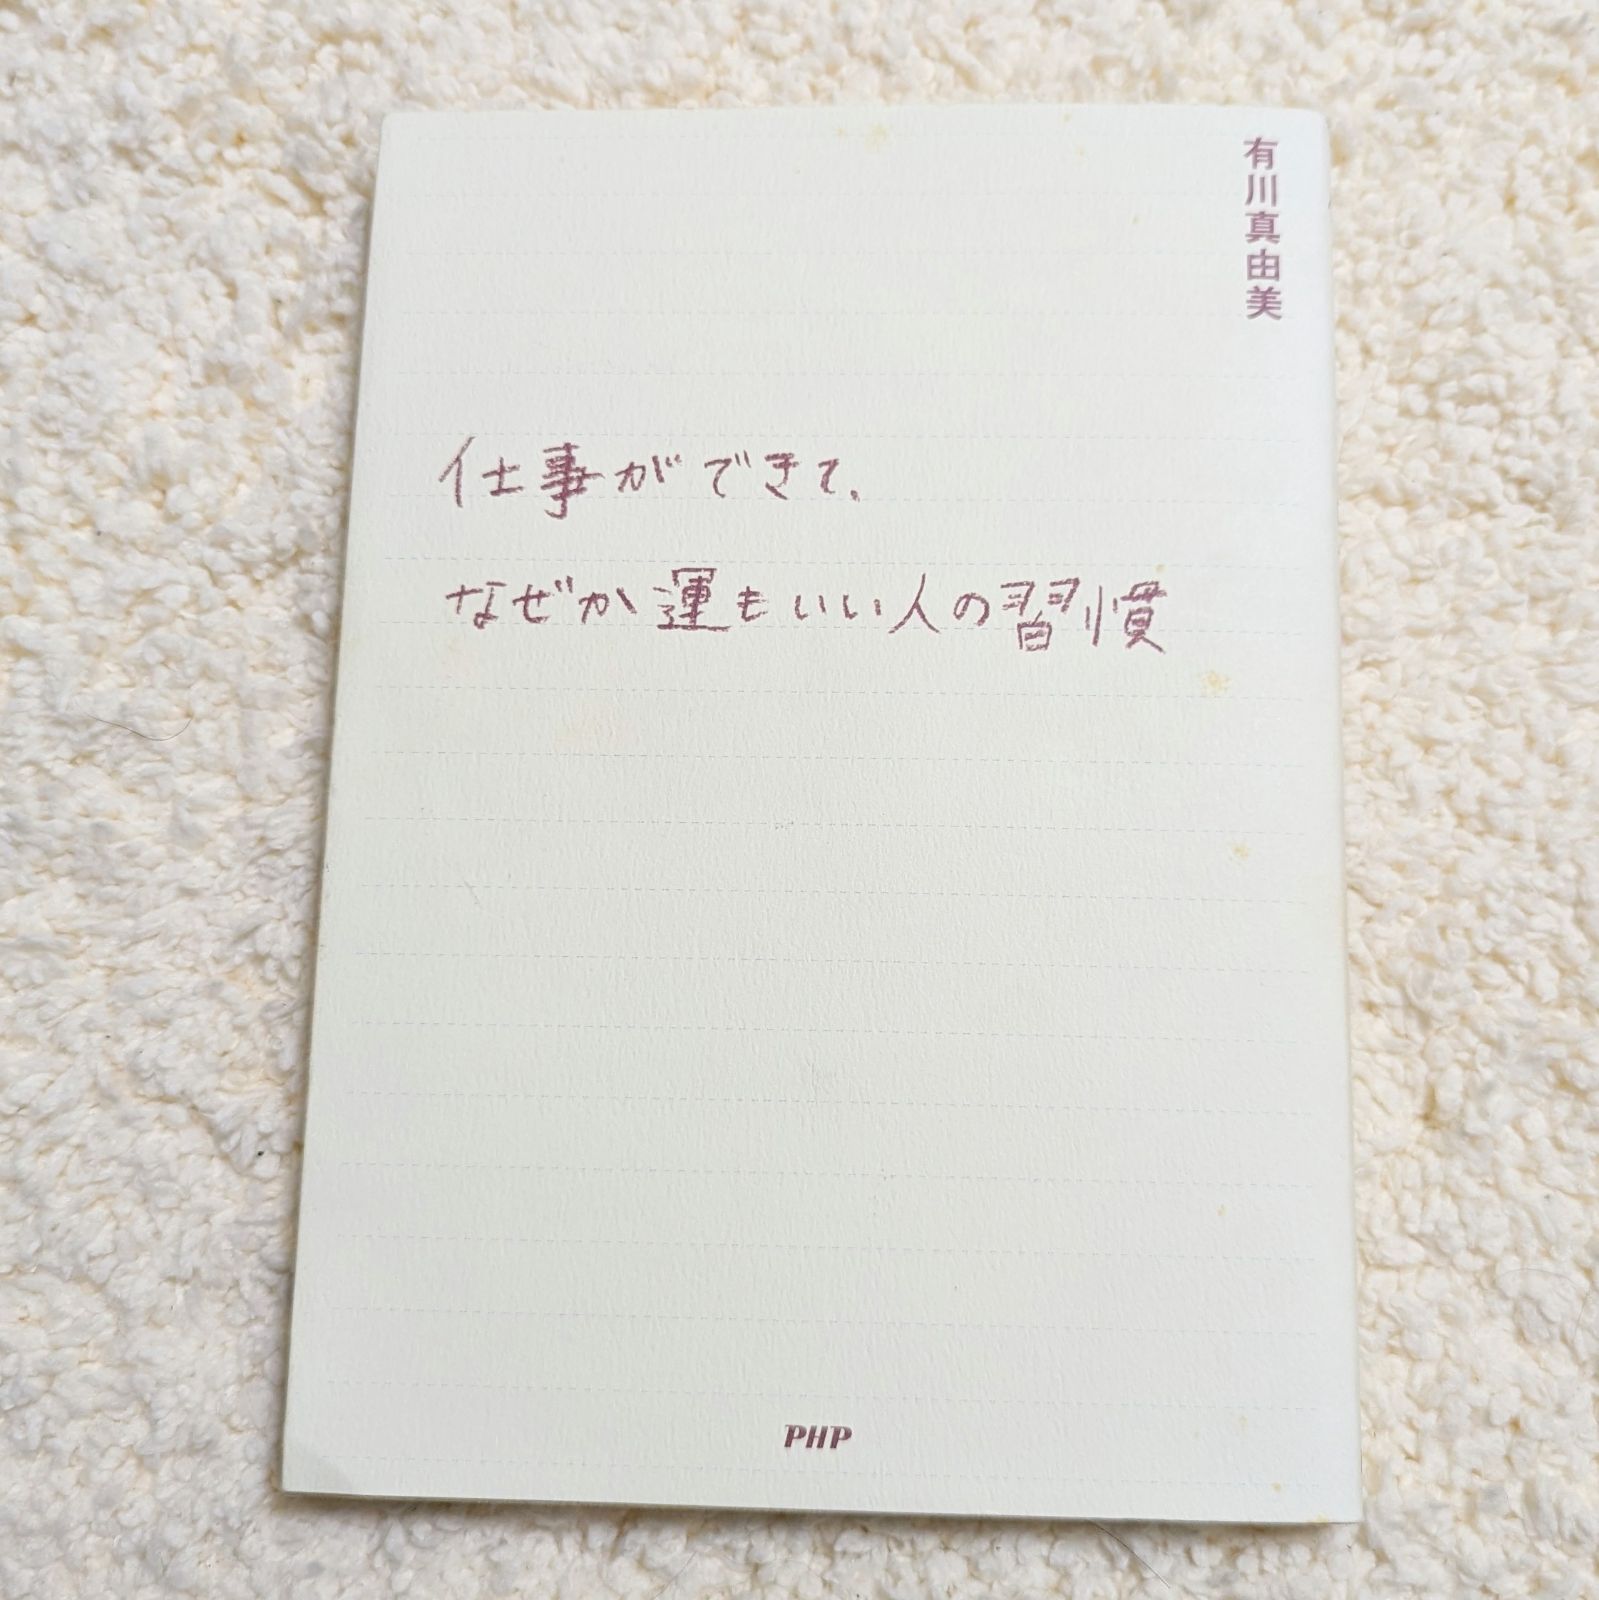 有川真由美
仕事ができて、
なぜか運もいい人の習慣
PHP